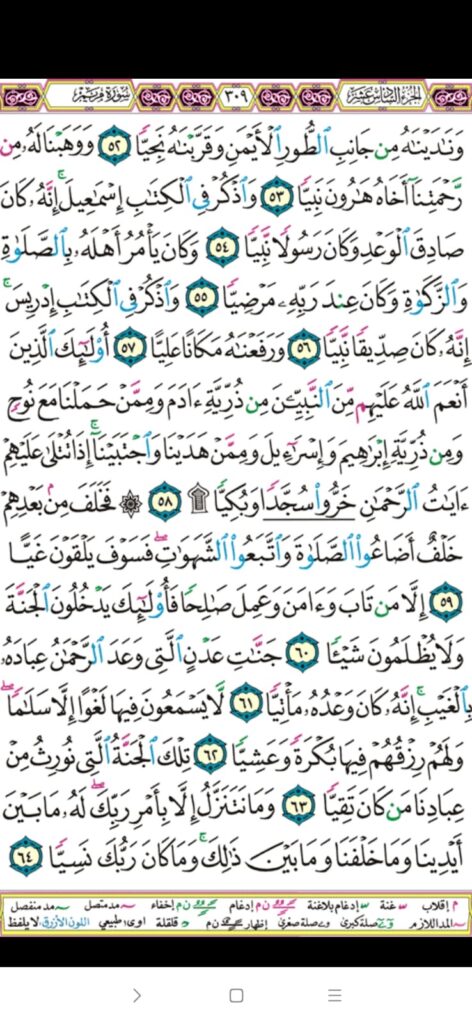 الجزء السادس عشر ٣٠٩ سورة مريم
وَنَٰدَيْنَٰهُ مِن جَانِبِ ٱلطُّورِ ٱلْأَيْمَنِ وَقَرَّبْنَٰهُ نَجِيًّا ٥٢ وَوَهَبْنَا لَهُۥ مِن
رَّحْمَتِنَآ أَخَاهُ هَٰرُونَ نَبِيًّا ٥٣ وَٱذْكُرْ فِي ٱلْكِتَٰبِ إِسْمَٰعِيلَ ۚ إِنَّهُۥ كَانَ
صَادِقَ ٱلْوَعْدِ وَكَانَ رَسُولًا نَّبِيًّا ٥٤ وَكَانَ يَأْمُرُ أَهْلَهُۥ بِٱلصَّلَوٰةِ
وَٱلزَّكَوٰةِ وَكَانَ عِندَ رَبِّهِۦ مَرْضِيًّا ٥٥ وَٱذْكُرْ فِي ٱلْكِتَٰبِ إِدْرِيسَ ۚ
إِنَّهُۥ كَانَ صِدِّيقًا نَّبِيًّا ٥٦ وَرَفَعْنَٰهُ مَكَانًا عَلِيًّا ٥٧ أُو۟لَٰٓئِكَ ٱلَّذِينَ
أَنْعَمَ ٱللَّهُ عَلَيْهِم مِّنَ ٱلنَّبِيِّـۧنَ مِن ذُرِّيَّةِ ءَادَمَ وَمِمَّنْ حَمَلْنَا مَعَ نُوحٍ
وَمِن ذُرِّيَّةِ إِبْرَٰهِيمَ وَإِسْرَٰٓءِيلَ وَمِمَّنْ هَدَيْنَا وَٱجْتَبَيْنَآ ۚ إِذَا تُتْلَىٰ عَلَيْهِمْ
ءَايَٰتُ ٱلرَّحْمَٰنِ خَرُّوا۟ سُجَّدًا وَبُكِيًّا ۩ ٥٨ ۞ فَخَلَفَ مِنۢ بَعْدِهِمْ
خَلْفٌ أَضَاعُوا۟ ٱلصَّلَوٰةَ وَٱتَّبَعُوا۟ ٱلشَّهَوَٰتِ ۖ فَسَوْفَ يَلْقَوْنَ غَيًّا
٥٩ إِلَّا مَن تَابَ وَءَامَنَ وَعَمِلَ صَٰلِحًا فَأُو۟لَٰٓئِكَ يَدْخُلُونَ ٱلْجَنَّةَ
وَلَا يُظْلَمُونَ شَيْـًٔا ٦٠ جَنَّٰتِ عَدْنٍ ٱلَّتِي وَعَدَ ٱلرَّحْمَٰنُ عِبَادَهُۥ
بِٱلْغَيْبِ ۚ إِنَّهُۥ كَانَ وَعْدُهُۥ مَأْتِيًّا ٦١ لَّا يَسْمَعُونَ فِيهَا لَغْوًا إِلَّا سَلَٰمًا ۖ
وَلَهُمْ رِزْقُهُمْ فِيهَا بُكْرَةً وَعَشِيًّا ٦٢ تِلْكَ ٱلْجَنَّةُ ٱلَّتِي نُورِثُ مِنْ
عِبَادِنَا مَن كَانَ تَقِيًّا ٦٣ وَمَا نَتَنَزَّلُ إِلَّا بِأَمْرِ رَبِّكَ ۖ لَهُۥ مَا بَيْنَ
أَيْدِينَا وَمَا خَلْفَنَا وَمَا بَيْنَ ذَٰلِكَ ۚ وَمَا كَانَ رَبُّكَ نَسِيًّا ٦٤
م إقلاب غنة إدغام بلاغنة ن م إدغام ن م إخفاء مد متصل مد منفصل
المد اللازم صلة كبرى صلة صغرى إظهار ن م قلقلة اوى طبيعي اللون الأزرق لا يلفظ